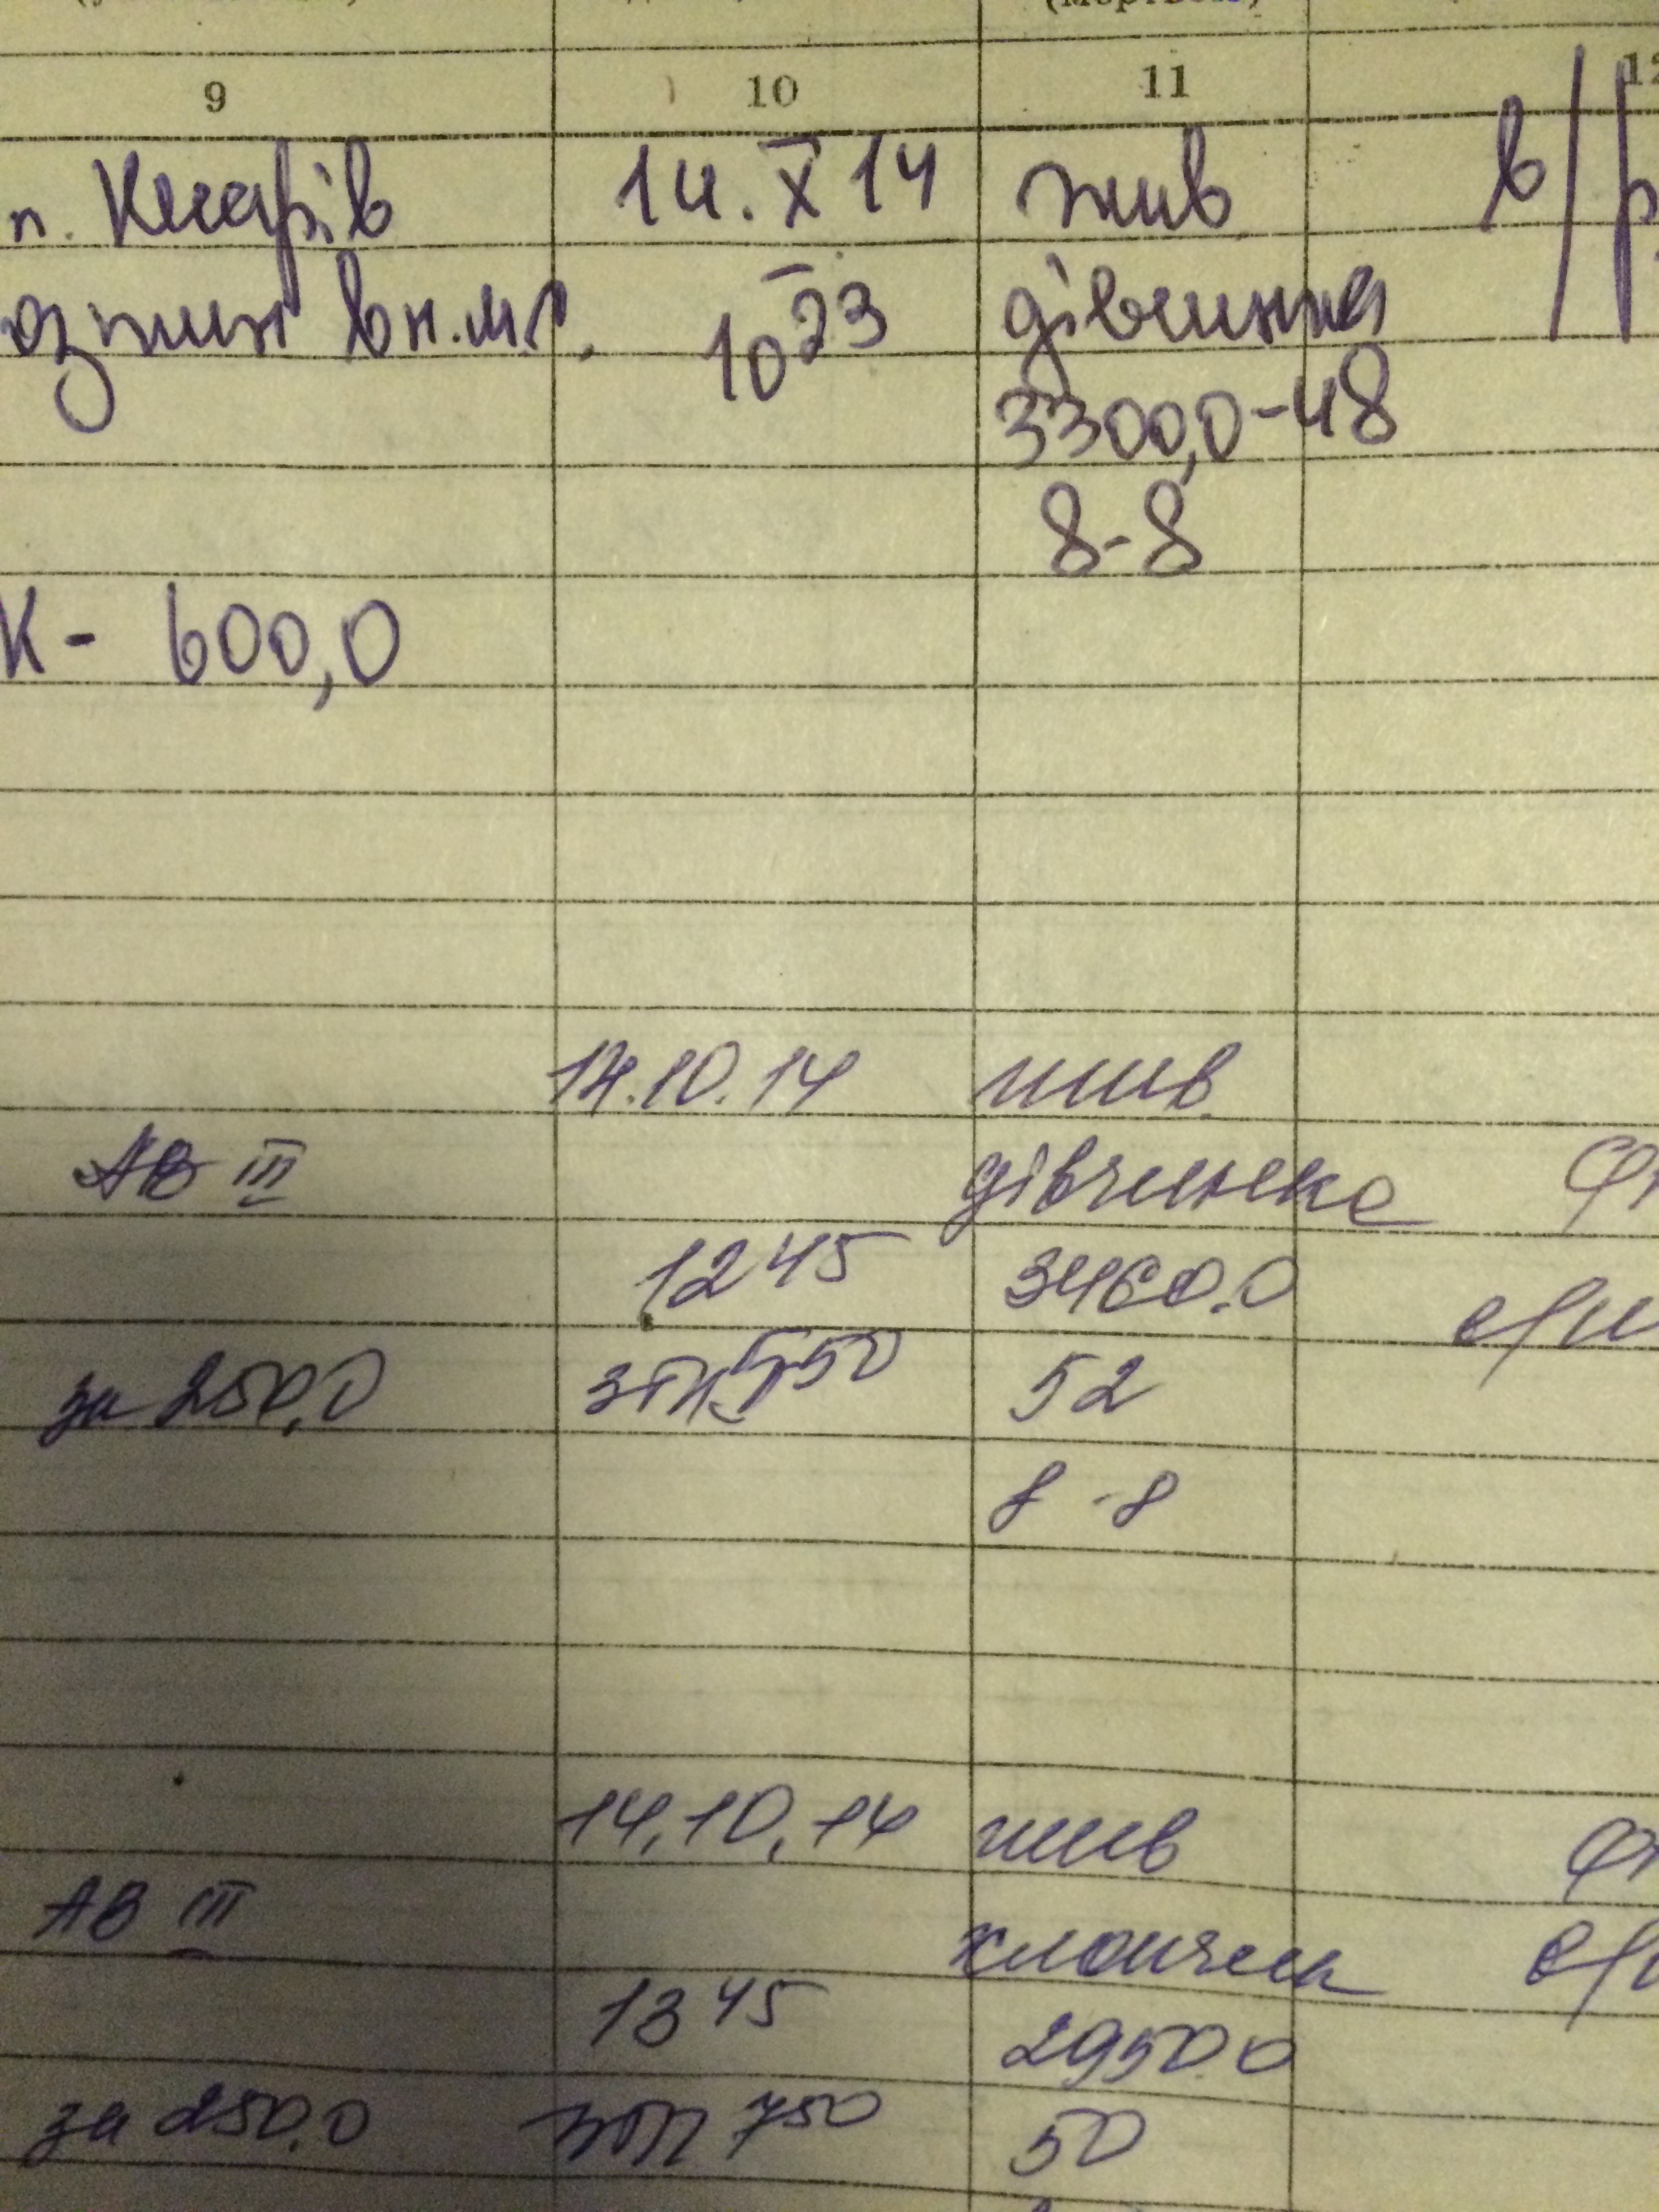 9 10 11 12
14.X 14 жив в/р
вн.м.с. 10 23 дівчинка
3300,0-48
8-8
К- 600,0
14.10.14 жив.
АВ III дівчинка
12 45 3460.0
за 250,0 550 52
8-8
14,10,14 жив
АВ III хлопчик
13 45 2950 0
за 250.0 750 50